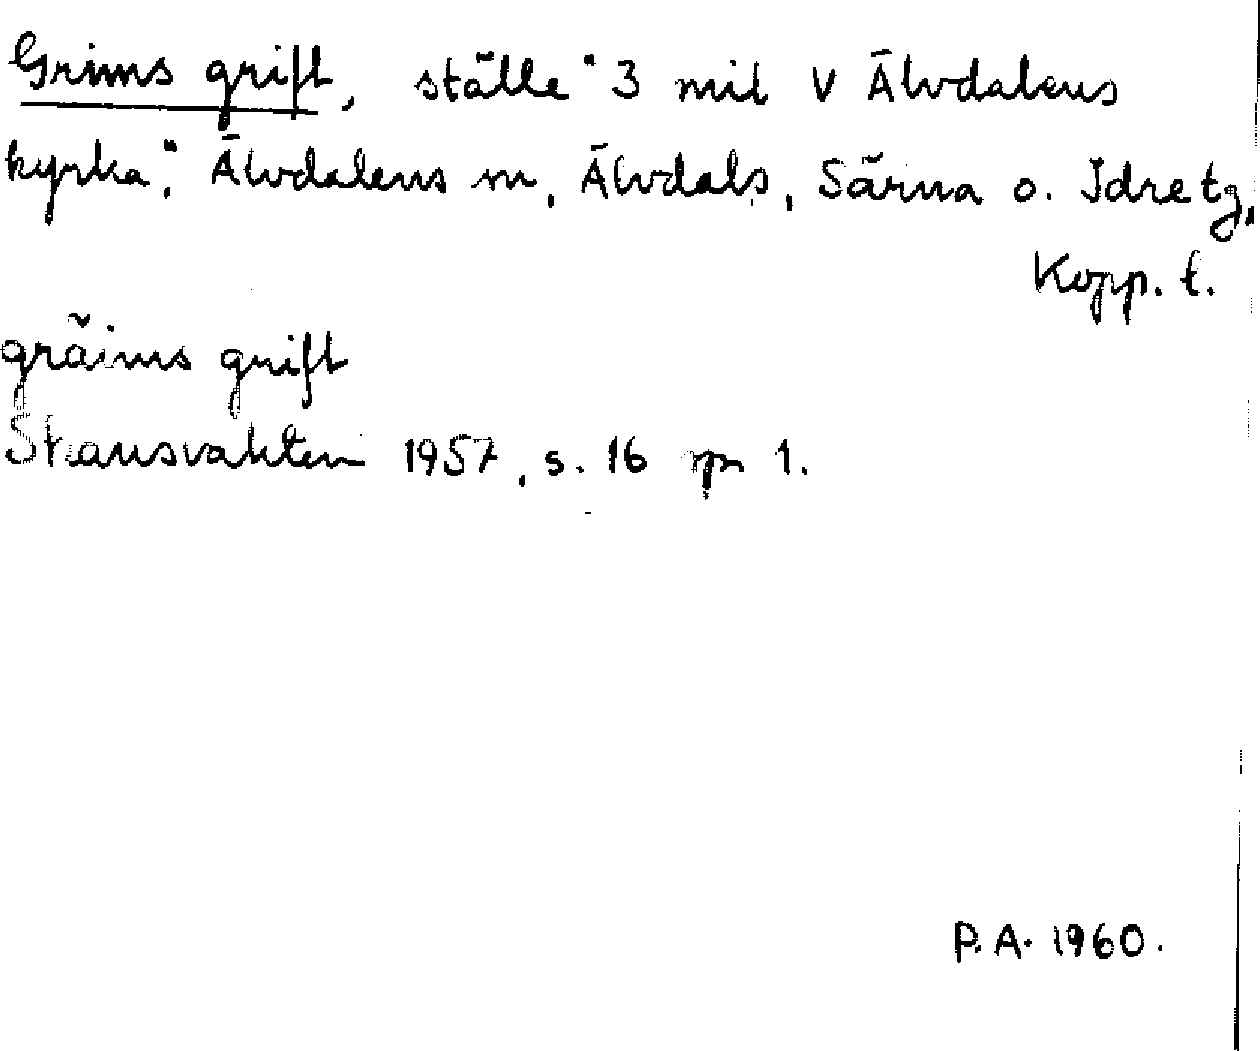 Grims grift, ställe "3 mil V Älvdalens
kyrka", Älvdalens sn, Älvdals, Särna o. Idre tg,
Kopp. l.
gräims grift
Skansvakten 1957, s. 16 sp 1.
P.A. 1960.